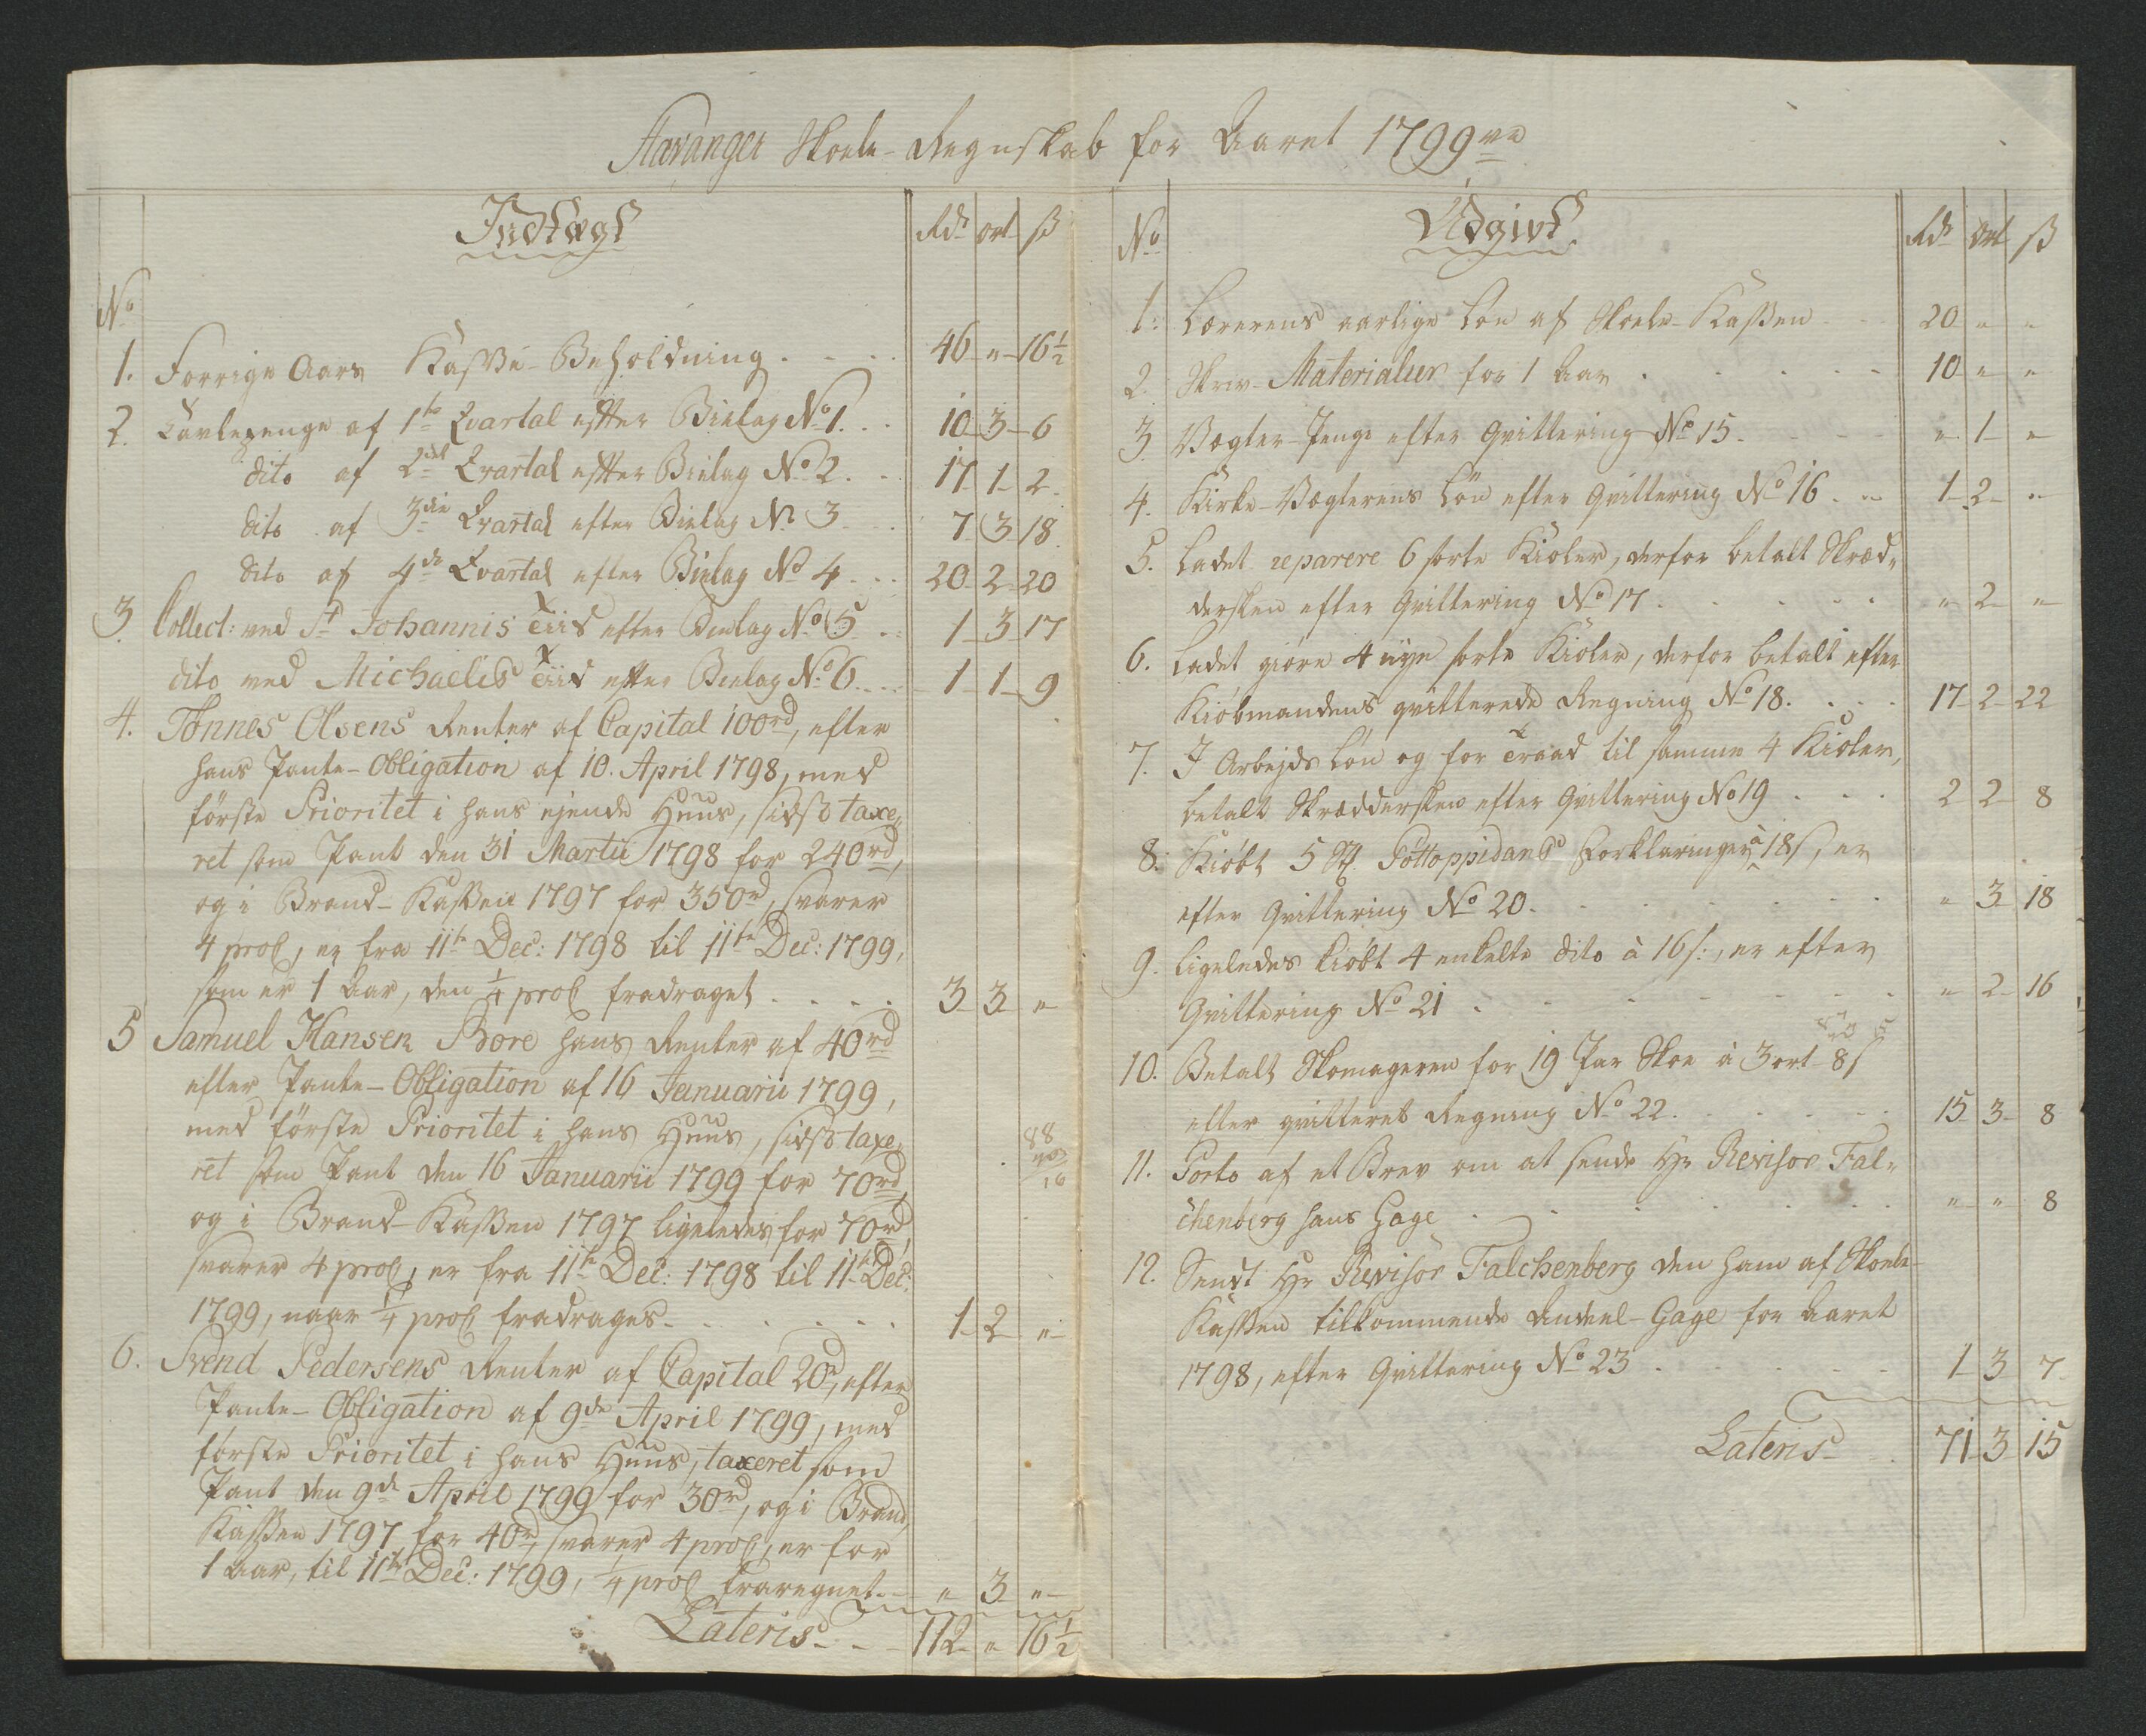 Stavanger Skoele-Regnskab for Aaret 1799ve
Indtægt
Rdr ort ß
No
1. Forrige Aars Kasse-Beholdning . . . 46 - " - 16½
2. Tavlepenge af 1te Qvartal efter Bielag No 1. . . 10 - 3 - 6
dito af 2det Qvartal efter Bielag No 2 . . 17 - 1 - 2
dito af 3die Qvartal efter Bielag No 3 . . 7 - 3 - 18
dito af 4de Qvartal efter Bielag No 4 . . . 20 - 2 - 20
3. Collect: ved St Johannis Tiid efter Bielag No 5 . . 1 - 3 - 17
dito ved Michaelis Tiid efter Bielag No 6 . . . 1 - 1 - 9
4. Tönnes Olsens Renter af Capital 100rd, efter
hans Pante-Obligation af 10. April 1798, med
förste Prioritet i hans ejende Huus, sidst taxe-
ret som Pant den 31 Martii 1798 for 240rd,
og i Brand-Kassen 1797 for 350rd, svarer
4 proC, er fra 11te Dec: 1798 til 11te Dec: 1799,
som er 1 Aar, den ¼ proC fradraget . . . . 3 - 3 - "
5 Samuel Hansen Bore hans Renter af 40rd
efter Pante-Obligation af 16 Januarii 1799,
med förste Prioritet i hans Huus, sidst taxe-
ret som Pant den 16 Januarii 1799 for 70rd,
og i Brand-Kassen 1797 ligeledes for 70rd,
svarer 4 proC, er fra 11te Dec: 1798 til 11te Dec:
1799, naar ¼ proC fradrages . . . . . . 1 - 2 - "
6. Svend Pedersens Renter af Capital 20rd, efter
Pante-Obligation af 9de April 1799, med
förste Prioritet i hans Huus, taxeret som
Pant den 9de April 1799 for 30rd, og i Brand-
Kassen 1797 for 40rd, svarer 4 proC, er for
1 Aar, til 11te Dec: 1799, ¼ proC fraregnet . . " - 3 - "
Lateris . . 112 - " - 16½
No Udgivt. Rdr ort ß
1. Lærerens aarlige Lön af Skoele-Kassen . . 20 - " - "
2. Skriv-Materialier for 1 Aar . . . . . 10 - " - "
3. Vægter-Penge efter Qvittering No 15 . . . . " - 1 - "
4. Kirke-Vægterens Lön efter Qvittering No 16 . . 1 - 2 - "
5. Ladet reparere 6 sorte Kioler, derfor betalt Skræd-
dersken efter Qvittering No 17 . . . . . . " - 2 - "
6. Ladet giöre 4 nye sorte Kioler, derfor betalt efter
Kiöbmandens qvitterede Regning No 18. . . . 17 - 2 - 22
7. I Arbejds Lön og for Traad til samme 4 Kioler,
betalt Skræddersken efter Qvittering No 19 . . . 2 - 2 - 8
8. Kiöbt 5 St. Pöttoppidans Forklaringer à 18ß, er
efter Qvittering No 20 . . . . . . . . " - 3 - 18
9. Ligeledes kiöbt 4 enkelte dito à 16ß:, er efter
Qvittering No 21 . . . . . . . . " - 2 - 16
10. Betalt Skomageren for 19 Par Skoe à 3 ort 8ß
efter qvitteret Regning No 22 . . . . . . 15 - 3 - 8
11. Porto af et Brev om at sende Hr Revisor Fal-
chenberg hans Gage . . . . . . . . " - " - 8
12. Sendt Hr Revisor Falchenberg den ham af Skoele-
Kassen tilkommende Andeel-Gage for Aaret
1798, efter Qvittering No 23 . . . . . 1 - 3 - 7
Lateris . . 71 - 3 - 15